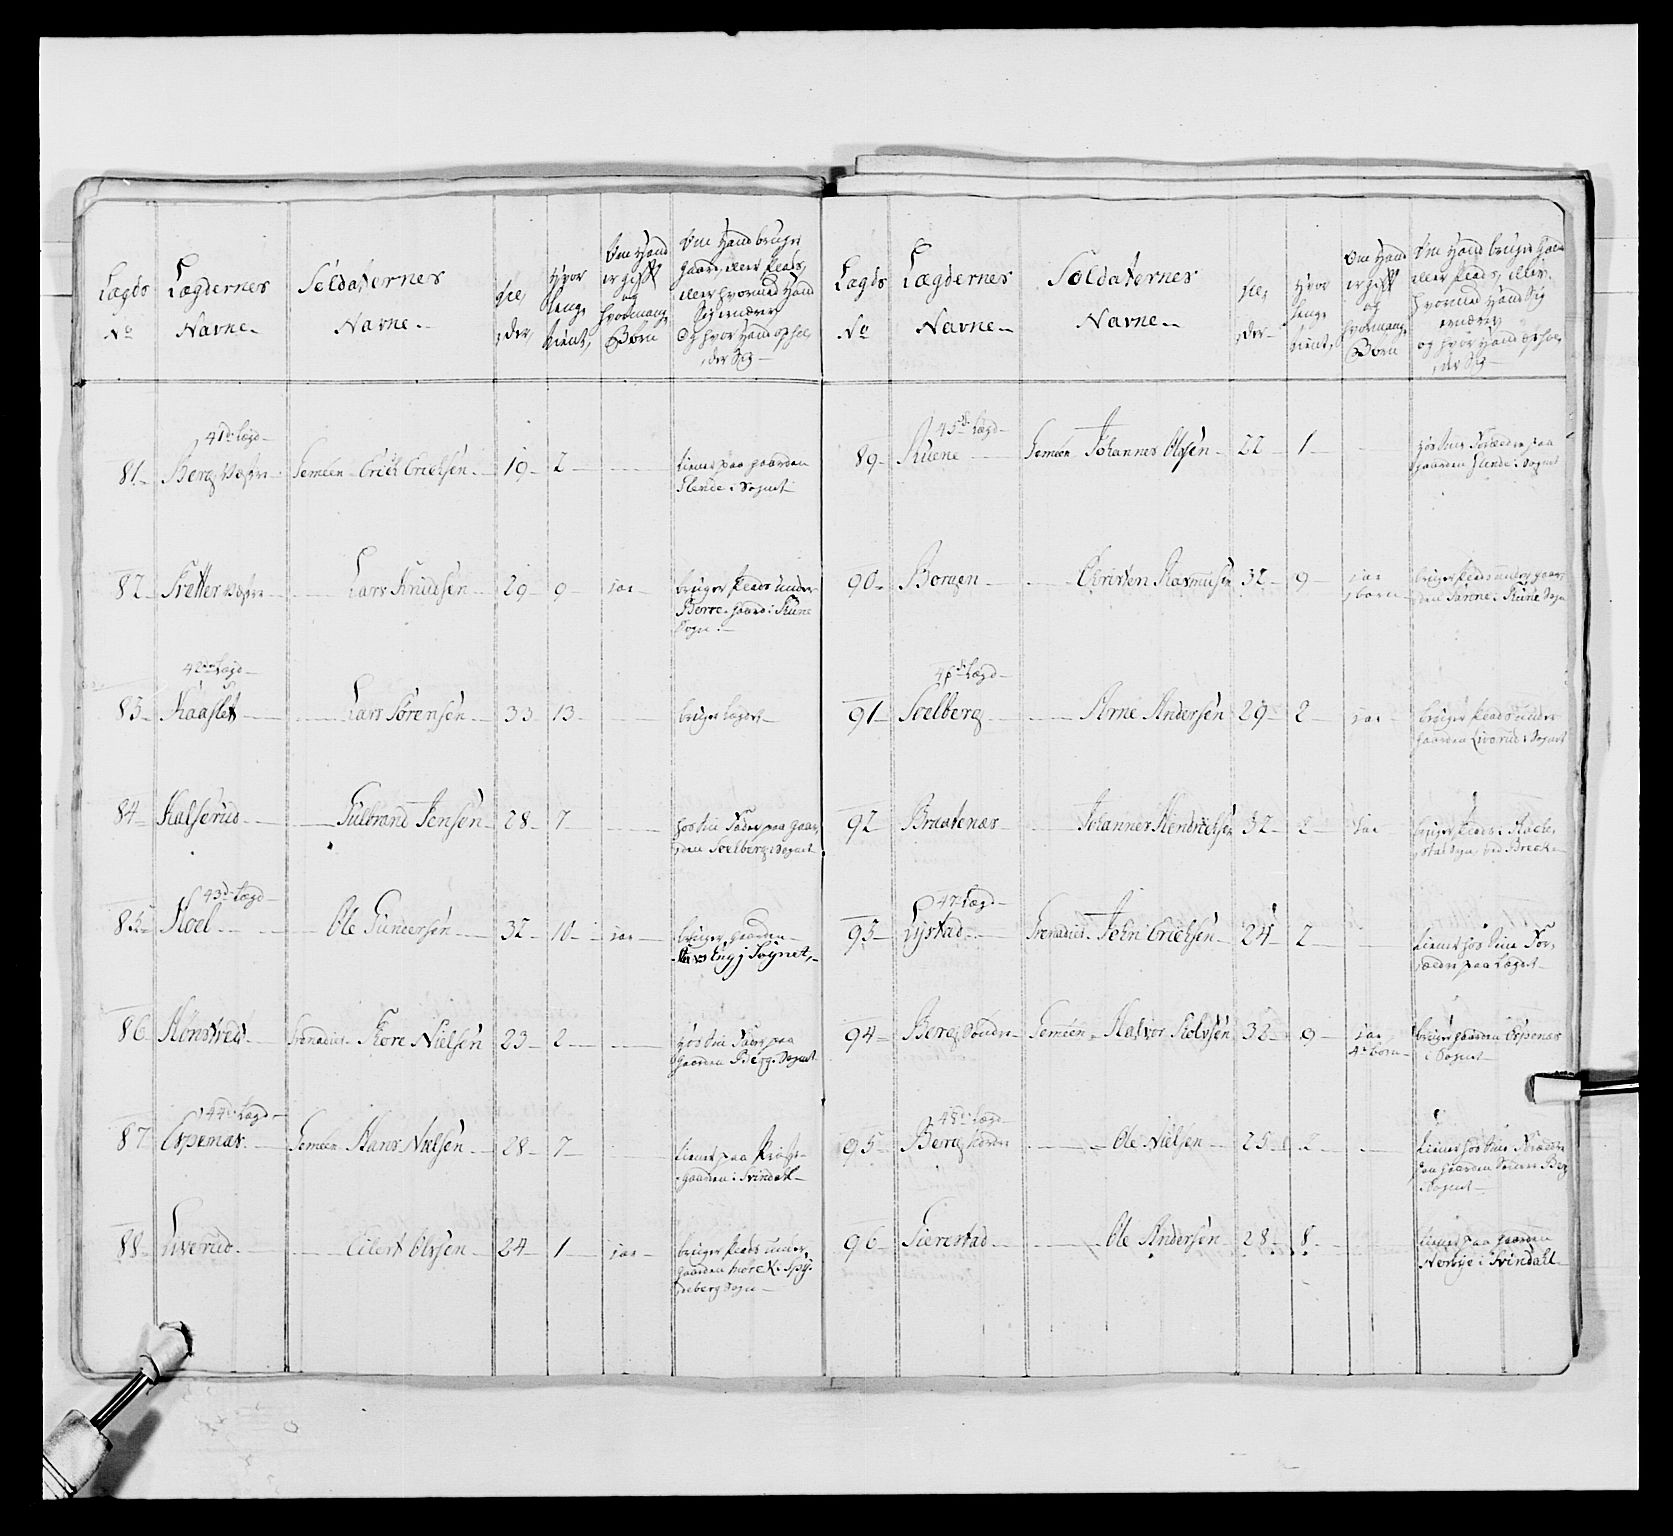 Lægds
No
Lægdernes
Navne
Soldaternes
Navne
Al,
,der
Hvor
længe
tient,
Om Hand
er gift
og
hvormange
Børn
Om Hand bruger
gaard, eller Plads,
eller hvormed Hand
Sig ernærer
Og hvor Hand ophol,
,der Sig
41de Lægd
81 Berg Vestre Gemeen Erich Erichsen 19 2 tiener paa gaarden
Elende i Sognet
82 Tretter Vestre Lars Knudsen 29 9 jaa bruger Plads under
gaard i
Sogn
42de Lægd
83 Kaaslet Lars Sørensen 33 13 bruger Lægdet
84 Kalserud Gulbrand Jensen 28 7 hos sin Fader paa gaar,
,den Soelberg i Sognet
43de Lægd
85 Koel Ole Gundersen 32 10 jaa bruger gaarden
i Sognet
86 Mønsted Grenadier Tore Nielsen 23 2 hos sin Fader paa
gaarden Berg i Sognet
44de Lægd
87 Espenæs Gemeen Hans Nielsen 28 7 tiener paa Præste
gaarden i Svindall
88 Liverud Eilert Olsen 24 1 jaa bruger Plads under
gaarden i Spy,
,deberg Sogn
Lægds
No
Lægdernes
Navne
Soldaternes
Navne
Al,
,der
Hvor
længe
tient,
Om Hand
er gift
og
hvormange
Børn
Om Hand bruger Gaard
eller Plads, eller
hvormed Hand Sig
ernærer,
og hvor Hand ophol,
,der Sig
45de Lægd
89 Gemeen Johannes Olsen 22 1 hos sine Forældre paa
gaarden Elende i Sognet
90 Borgen Christen Rasmusen 32 9 jaa
børn
bruger Plads under gaar,
,den i Sogn
46de Lægd
91 Soelberg Arne Andersen 29 2 jaa bruger Plads under
gaarden Liverud i Sognet
92 Braatenæs Johannes Hendrichsen 32 2 jaa bruger Plads i
Sogn ved
47de Lægd
93 Lystad Grenadier John Erichsen 24 2 tiener hos sine For,
,ældre paa Lægdet
94 Berg Søndre Gemeen Halvor Rolvsen 32 9 jaa
4 børn
bruger gaarden Espenæs
i Sognet
48de Lægd
95 Berg Nordre Ole Nielsen 25 2 tiener hos sine Forældre
paa gaarden Berg
Sognet
96 Tierestad Ole Andersen 28 8 tiener paa gaarden
Nerbye i Svindall